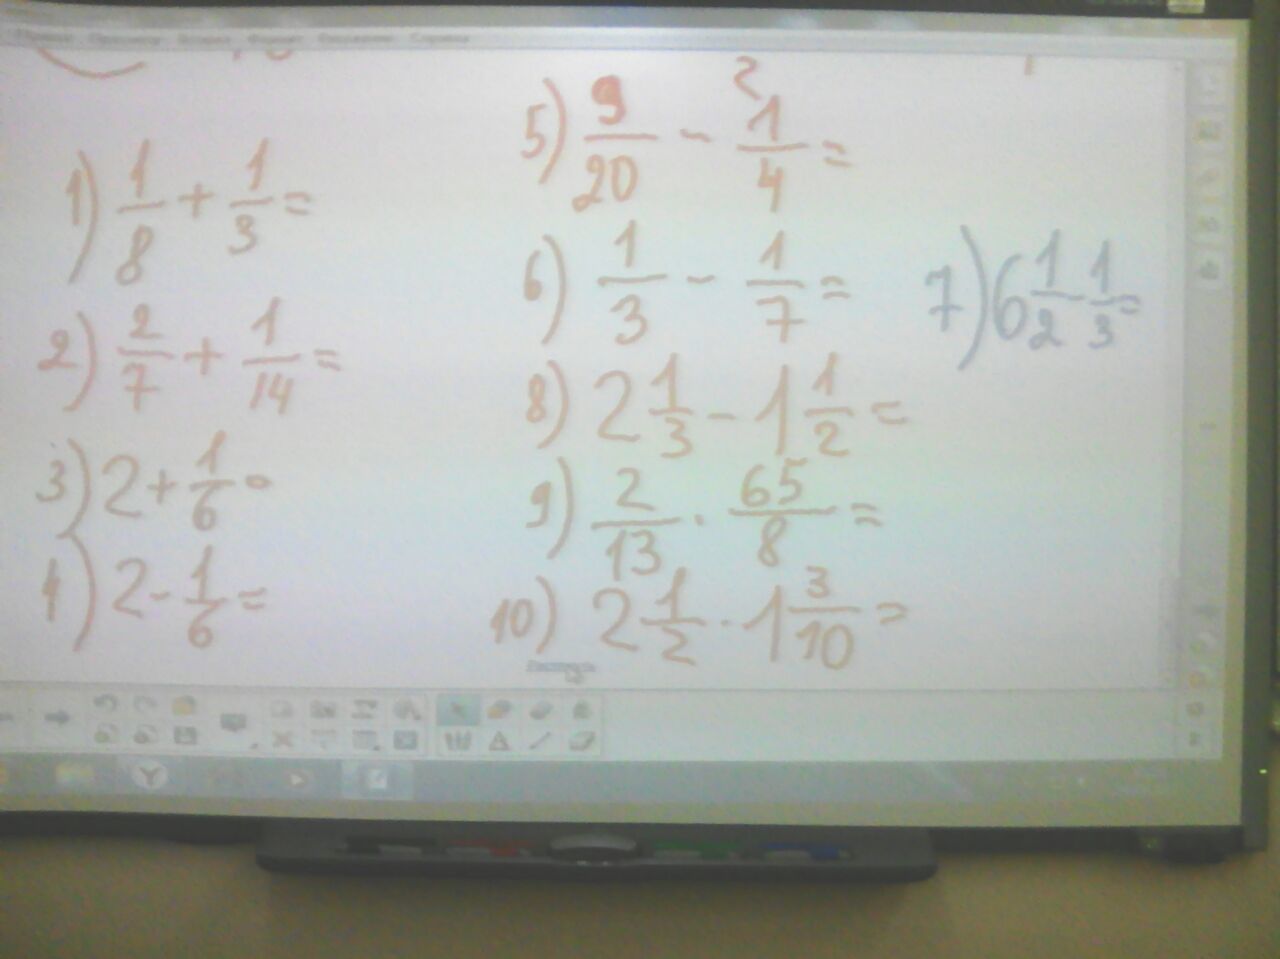 1) 1/8 + 1/3 =
2) 2/7 + 1/14 =
3) 2 + 1/6 =
4) 2 - 1/6 =
5) 9/20 - 1/4 =
6) 1/3 - 1/7 =
7) 6 1/2 - 1/3 =
8) 2 1/3 - 1 1/2 =
9) 2/13 · 65/8 =
10) 2 1/2 · 1 3/10 =